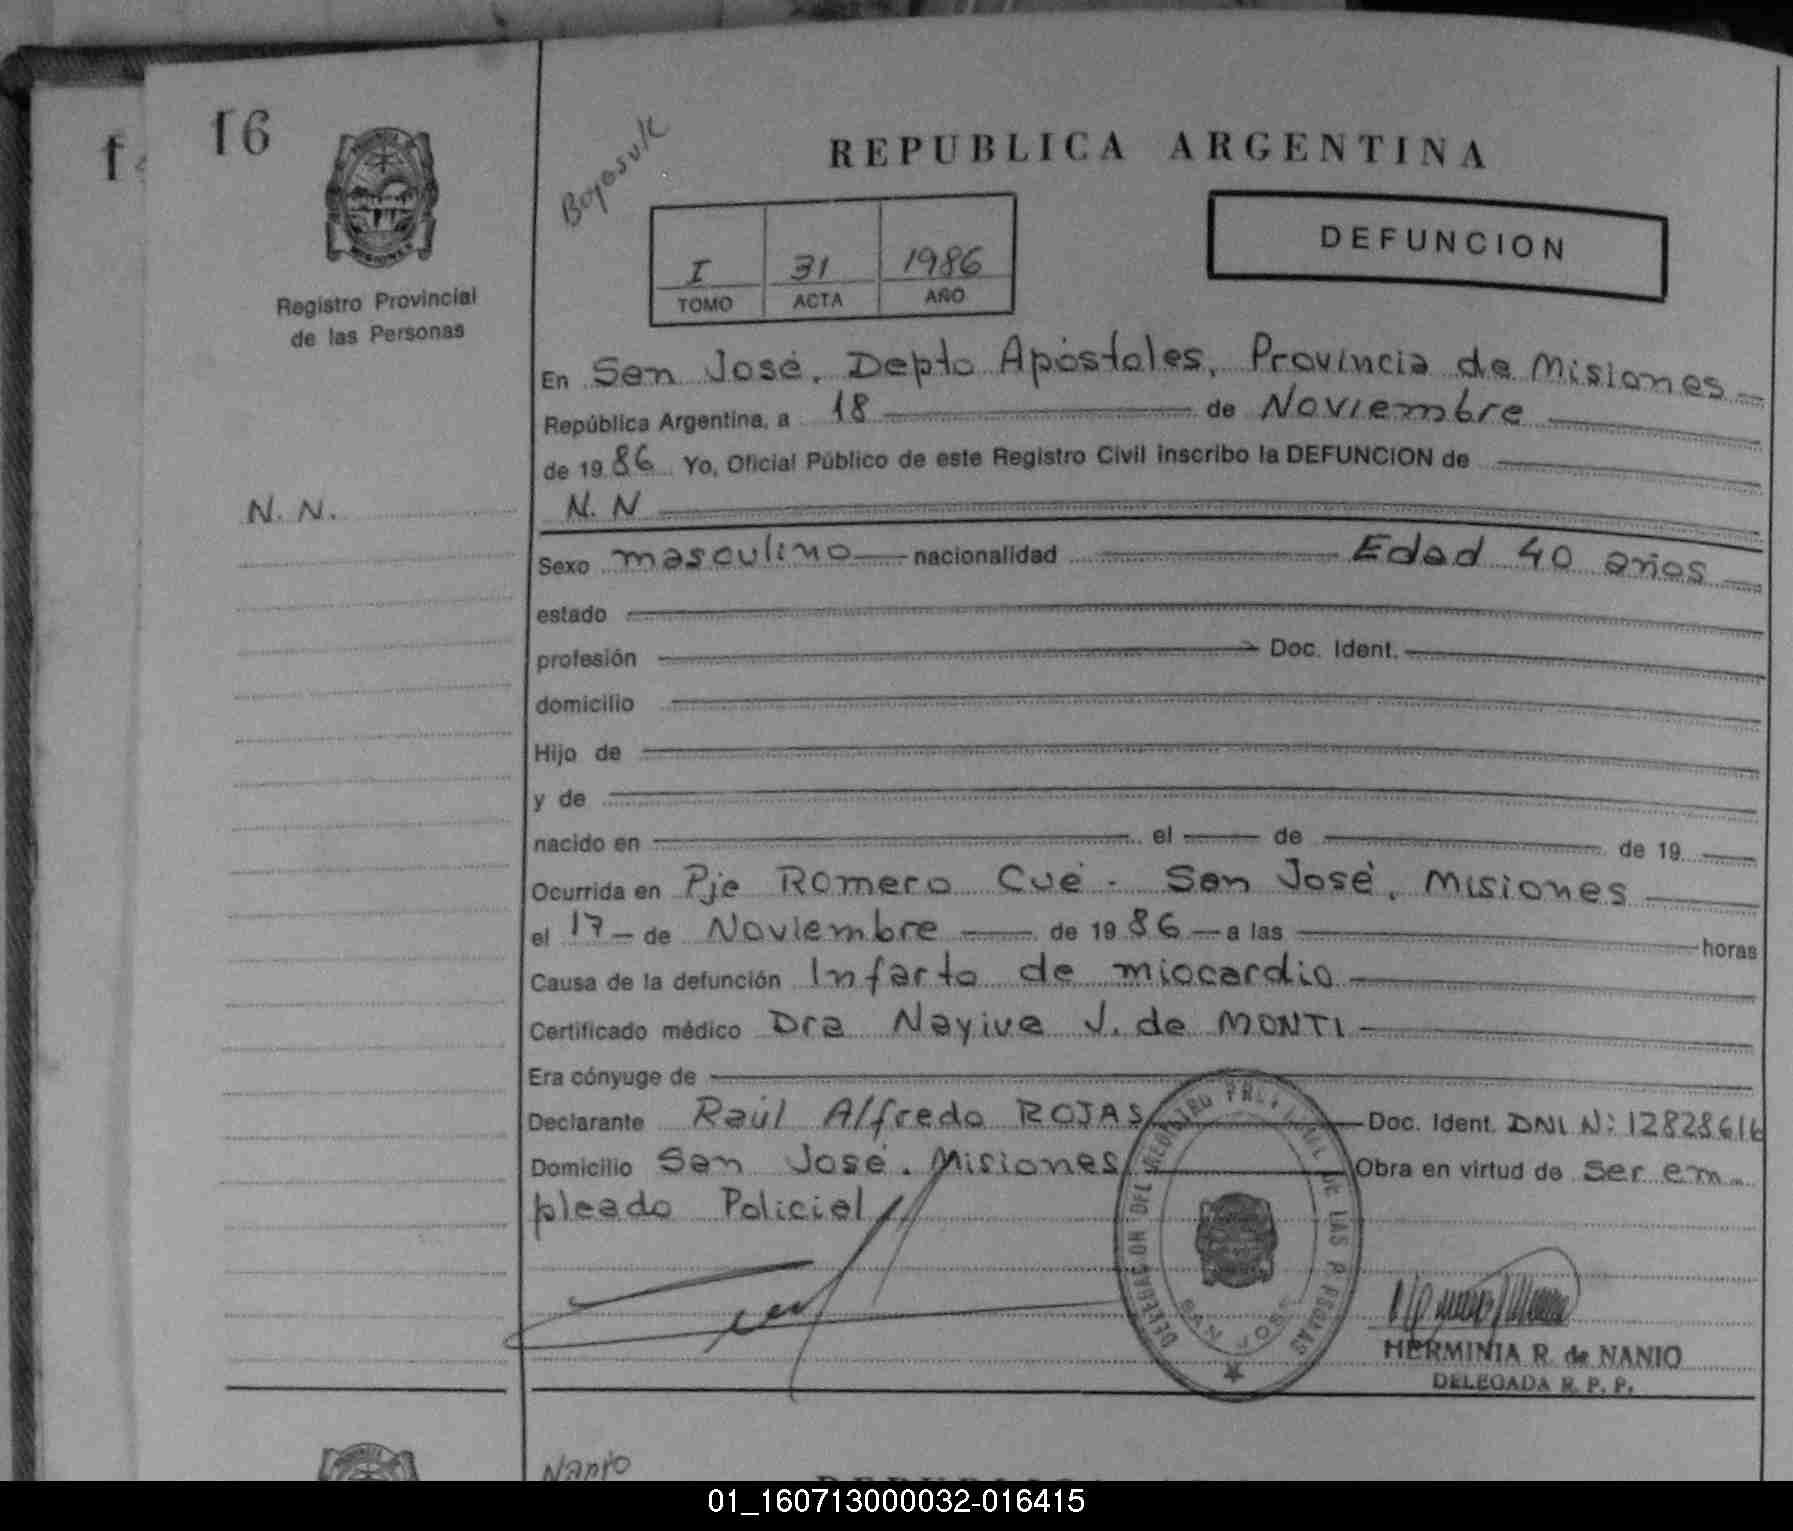 16
Registro Provincial
de las Personas
N. N.
REPUBLICA ARGENTINA
I 31 1986
TOMO ACTA AÑO
DEFUNCION
En San José, Depto Apóstoles, Provincia de Misiones
República Argentina, a 18 de Noviembre
de 1986 Yo, Oficial Público de este Registro Civil inscribo la DEFUNCION de
N. N
Sexo masculino nacionalidad Edad 40 años
estado
profesión Doc. Ident.
domicilio
Hijo de
y de
nacido en el de de 19
Ocurrida en Pje Romero Cué - San José, Misiones
el 17 de Noviembre de 1986 a las horas
Causa de la defunción Infarto de miocardio
Certificado médico Dra Nayive J. de MONTI
Era cónyuge de
Declarante Raúl Alfredo ROJAS Doc. Ident. DNI N: 12828616
Domicilio San José. Misiones Obra en virtud de ser em-
pleado Policial
DELEGACION DEL REGISTRO PROVINCIAL DE LAS PERSONAS
SAN JOSE
HERMINIA R. de NANIO
DELEGADA R. P. P.
Nanio
01_160713000032-016415